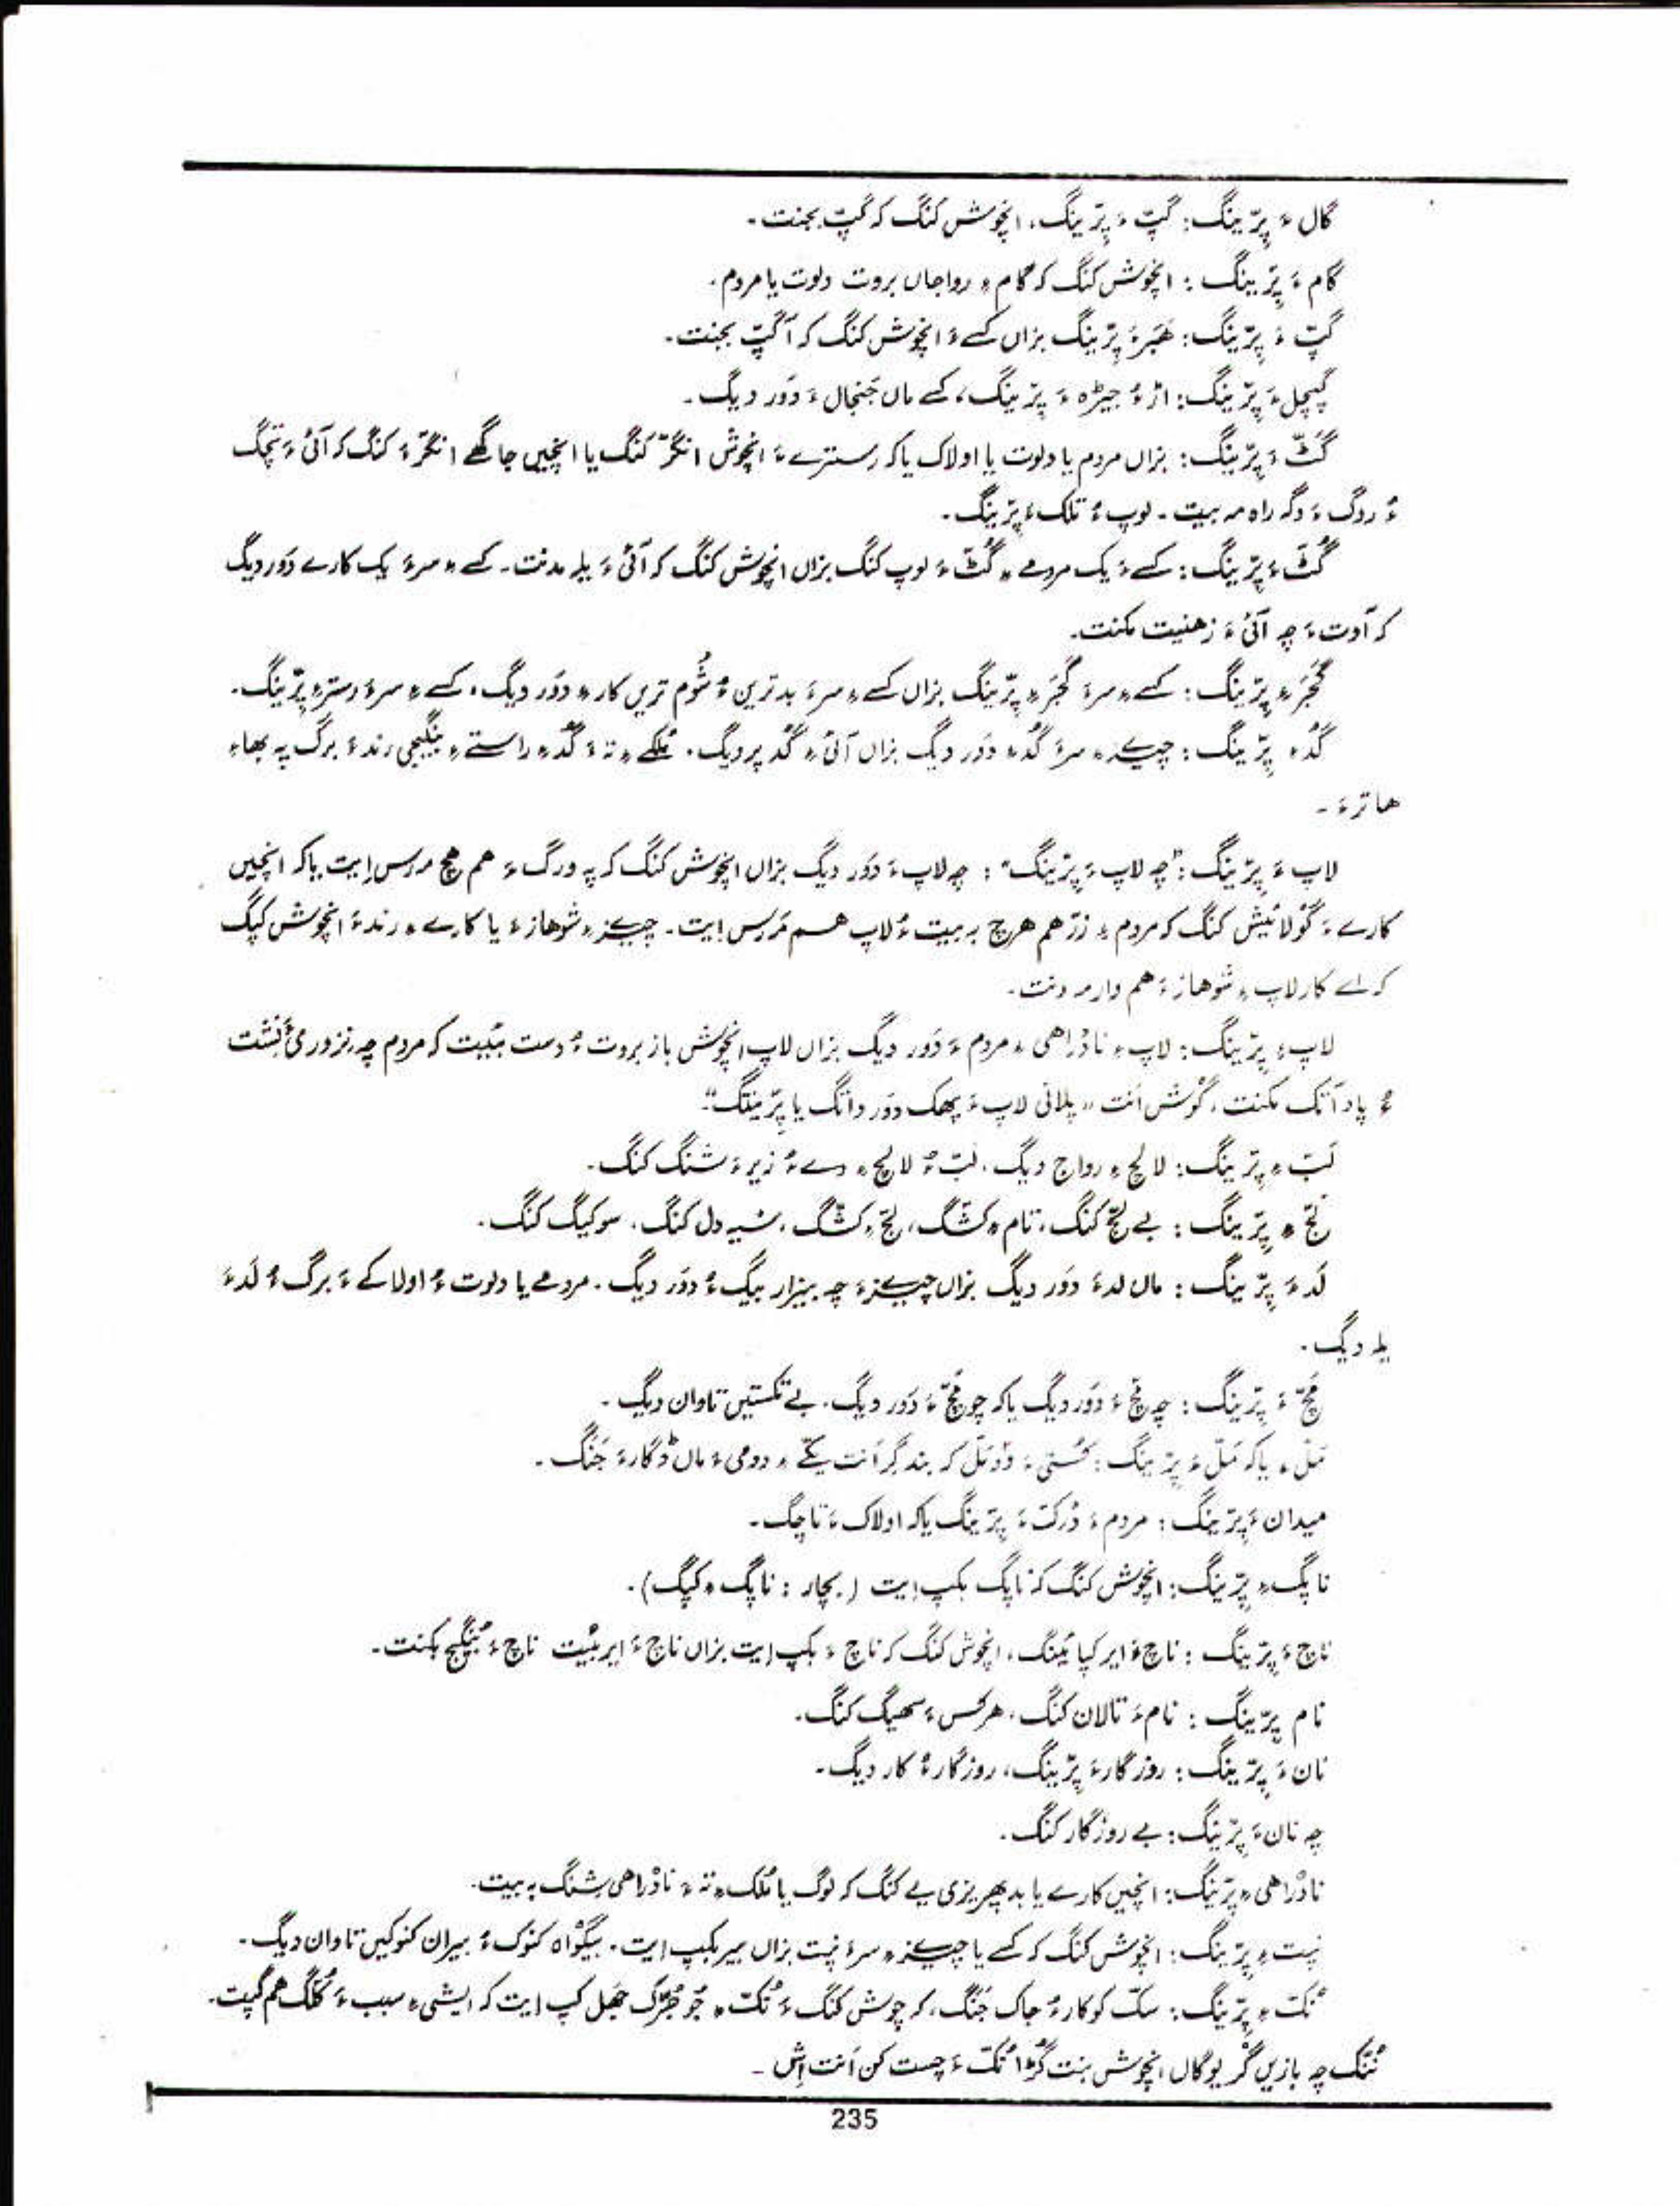 گال ءَ پِرّینگ: گپّ ءَ پِرّینگ، انچوش کنگ کہ گپّ بجنت۔
گام ءَ پِرّینگ: انچوش کنگ کہ گام ءِ رواجاں بروت دلوت یا مردم۔
گپّ ءَ پِرّینگ: ھَبَرءَ پِرّینگ بزاں کسے ءَ انچوش کنگ کہ آ گپّ بجنت۔
گیچل ءَ پِرّینگ: اڑ ءُ جیڑہ ءَ پِرّینگ، کسے ماں جَنجال ءَ دَور دیگ۔
گَٹّ ءَ پِرّینگ: بزاں مردم یا دلوت یا اولاک یا کہ رسترے ءَ انچوش انگَرّ کنگ یا انچیں جاگھے انگَرّ ءَ کنگ کہ آئی ءَ تچگ
ءُ روگ ءَ دگہ راہ مہ بیت۔ لوپ ءُ تلک ءَ پِرّینگ۔
گُٹّ ءَ پِرّینگ: کسے ءَ یک مردمے ءِ گُٹّ ءَ لوپ کنگ بزاں انچوش کنگ کہ آئی ءَ یلہ مدنت۔ کسے ءِ سرءَ یک کارے دَور دیگ
کہ آ وت ءَ چہ آئی ءَ زھنیت مکنت۔
گَجَر ءِ پِرّینگ: کسے ءِ سرءَ گَجَر ءِ پِرّینگ بزاں کسے ءِ سرءَ بدترین ءُ شُوم تریں کار ءِ دَور دیگ، کسے ءِ سرءَ رستر ءِ پِرّینگ۔
گُڈ ءِ پِرّینگ: چیزے ءِ سرءَ گُڈ ءِ دَور دیگ بزاں آئی ءِ گُڈ پر دیگ۔ مُلکے ءِ تہ ءَ گُڈ ءِ راستے ءِ بنگیجی رند ءَ برگ پہ بھاءِ
ھاترءَ۔
لاپ ءَ پِرّینگ: "چہ لاپ ءَ پِرّینگ": چہ لاپ ءَ دَور دیگ بزاں انچوش کنگ کہ پہ ورگ ءَ ھم ھچ مہ رس اِیت یا کہ انچیں
کارے ءَ گولائیش کنگ کہ مردم ءِ زرّ ھم ھرچ بہ بیت ءُ لاپ ھم مَرس اِیت۔ چیزے ءِ شوھاز ءَ یا کارے ءِ رند ءَ انچوش کپگ
کہ اے کار لاپ ءِ شوھاز ءَ ھم وار مہ دنت۔
لاپ ءِ پِرّینگ: لاپ ءِ نادْراھی ءِ مردم ءَ دَور دیگ بزاں لاپ انچوش باز بروت ءُ دست مبیت کہ مردم چہ نزوری ءَ نِشت
ءُ پاد آتک مکنت، گوش اَنت "پلانی لاپ ءَ پھک دَور داتگ یا پِرّینتگ"۔
لَبّ ءِ پِرّینگ: لالچ ءِ رواج دیگ، لبّ ءُ لالچ ءِ دے ءُ زیرءَ شنگ کنگ۔
لَجّ ءِ پِرّینگ: بے لجّ کنگ، نام ءِ کشّگ، لجّ ءِ کشّگ، سیہ دل کنگ، سوکیگ کنگ۔
لَد ءَ پِرّینگ: ماں لدءَ دَور دیگ بزاں چیزے ءَ چہ بیزار بیگ ءُ دَور دیگ۔ مردمے یا دلوت ءُ اولاکے ءَ برگ ءُ لَدءَ
یلہ دیگ۔
مَچّ ءَ پِرّینگ: چہ مچّ ءَ دَور دیگ یا کہ چو مچّ ءَ دَور دیگ۔ بے تکستیں تاوان دیگ۔
مَلّ ءِ یا کہ مَلّ ءَ پِرّینگ: کُشتی ءَ دَو مَلّ کہ بند گِر اَنت یکّے ءِ دومی ءَ ماں ڈگارءَ جَنگ۔
میدان ءَ پِرّینگ: مردم ءَ دُرکّ ءَ پِرّینگ یا کہ اولاک ءَ تاچگ۔
ناپگ ءِ پِرّینگ: انچوش کنگ کہ ناپگ بکپ اِیت (بچار: ناپگ ءِ کپگ)۔
ناچ ءَ پِرّینگ: ناچ ءَ ایر کپائینگ، انچوش کنگ کہ ناچ ءَ بکپ اِیت بزاں ناچ ءَ ایر بیت ناچ ءَ بُنگیج بکنت۔
نام پِرّینگ: نام ءَ تالان کنگ، ھرکس ءَ سھیگ کنگ۔
نان ءَ پِرّینگ: روزگارءَ پِرّینگ، روزگارءُ کار دیگ۔
چہ نان ءَ پِرّینگ: بے روزگار کنگ۔
نادْراھی ءِ پِرّینگ: انچیں کارے یا بدپھریزی یے کنگ کہ لوگ یا مُلک ءِ تہ ءَ نادْراھی شِنگ بہ بیت۔
نِپت ءِ پِرّینگ: انچوش کنگ کہ کسے یا چیزے ءِ سرءَ نِپت بزاں بیر بکپ اِیت۔ بیگواہ کنوک ءُ بیران کنوکیں تاوان دیگ۔
نُکّ ءِ پِرّینگ: سکّ کوکارءُ جاک جَنگ، کہ چوش کنگ ءَ نُکّ ءِ جھل کپ اِیت کہ ایشی ءِ سبب ءَ کُلّگ ھم گپت۔
نُنّک چہ بازیں گریوگاں انچوش بنت گڑا نُکّ ءَ چست کن اَنت اِش۔
235